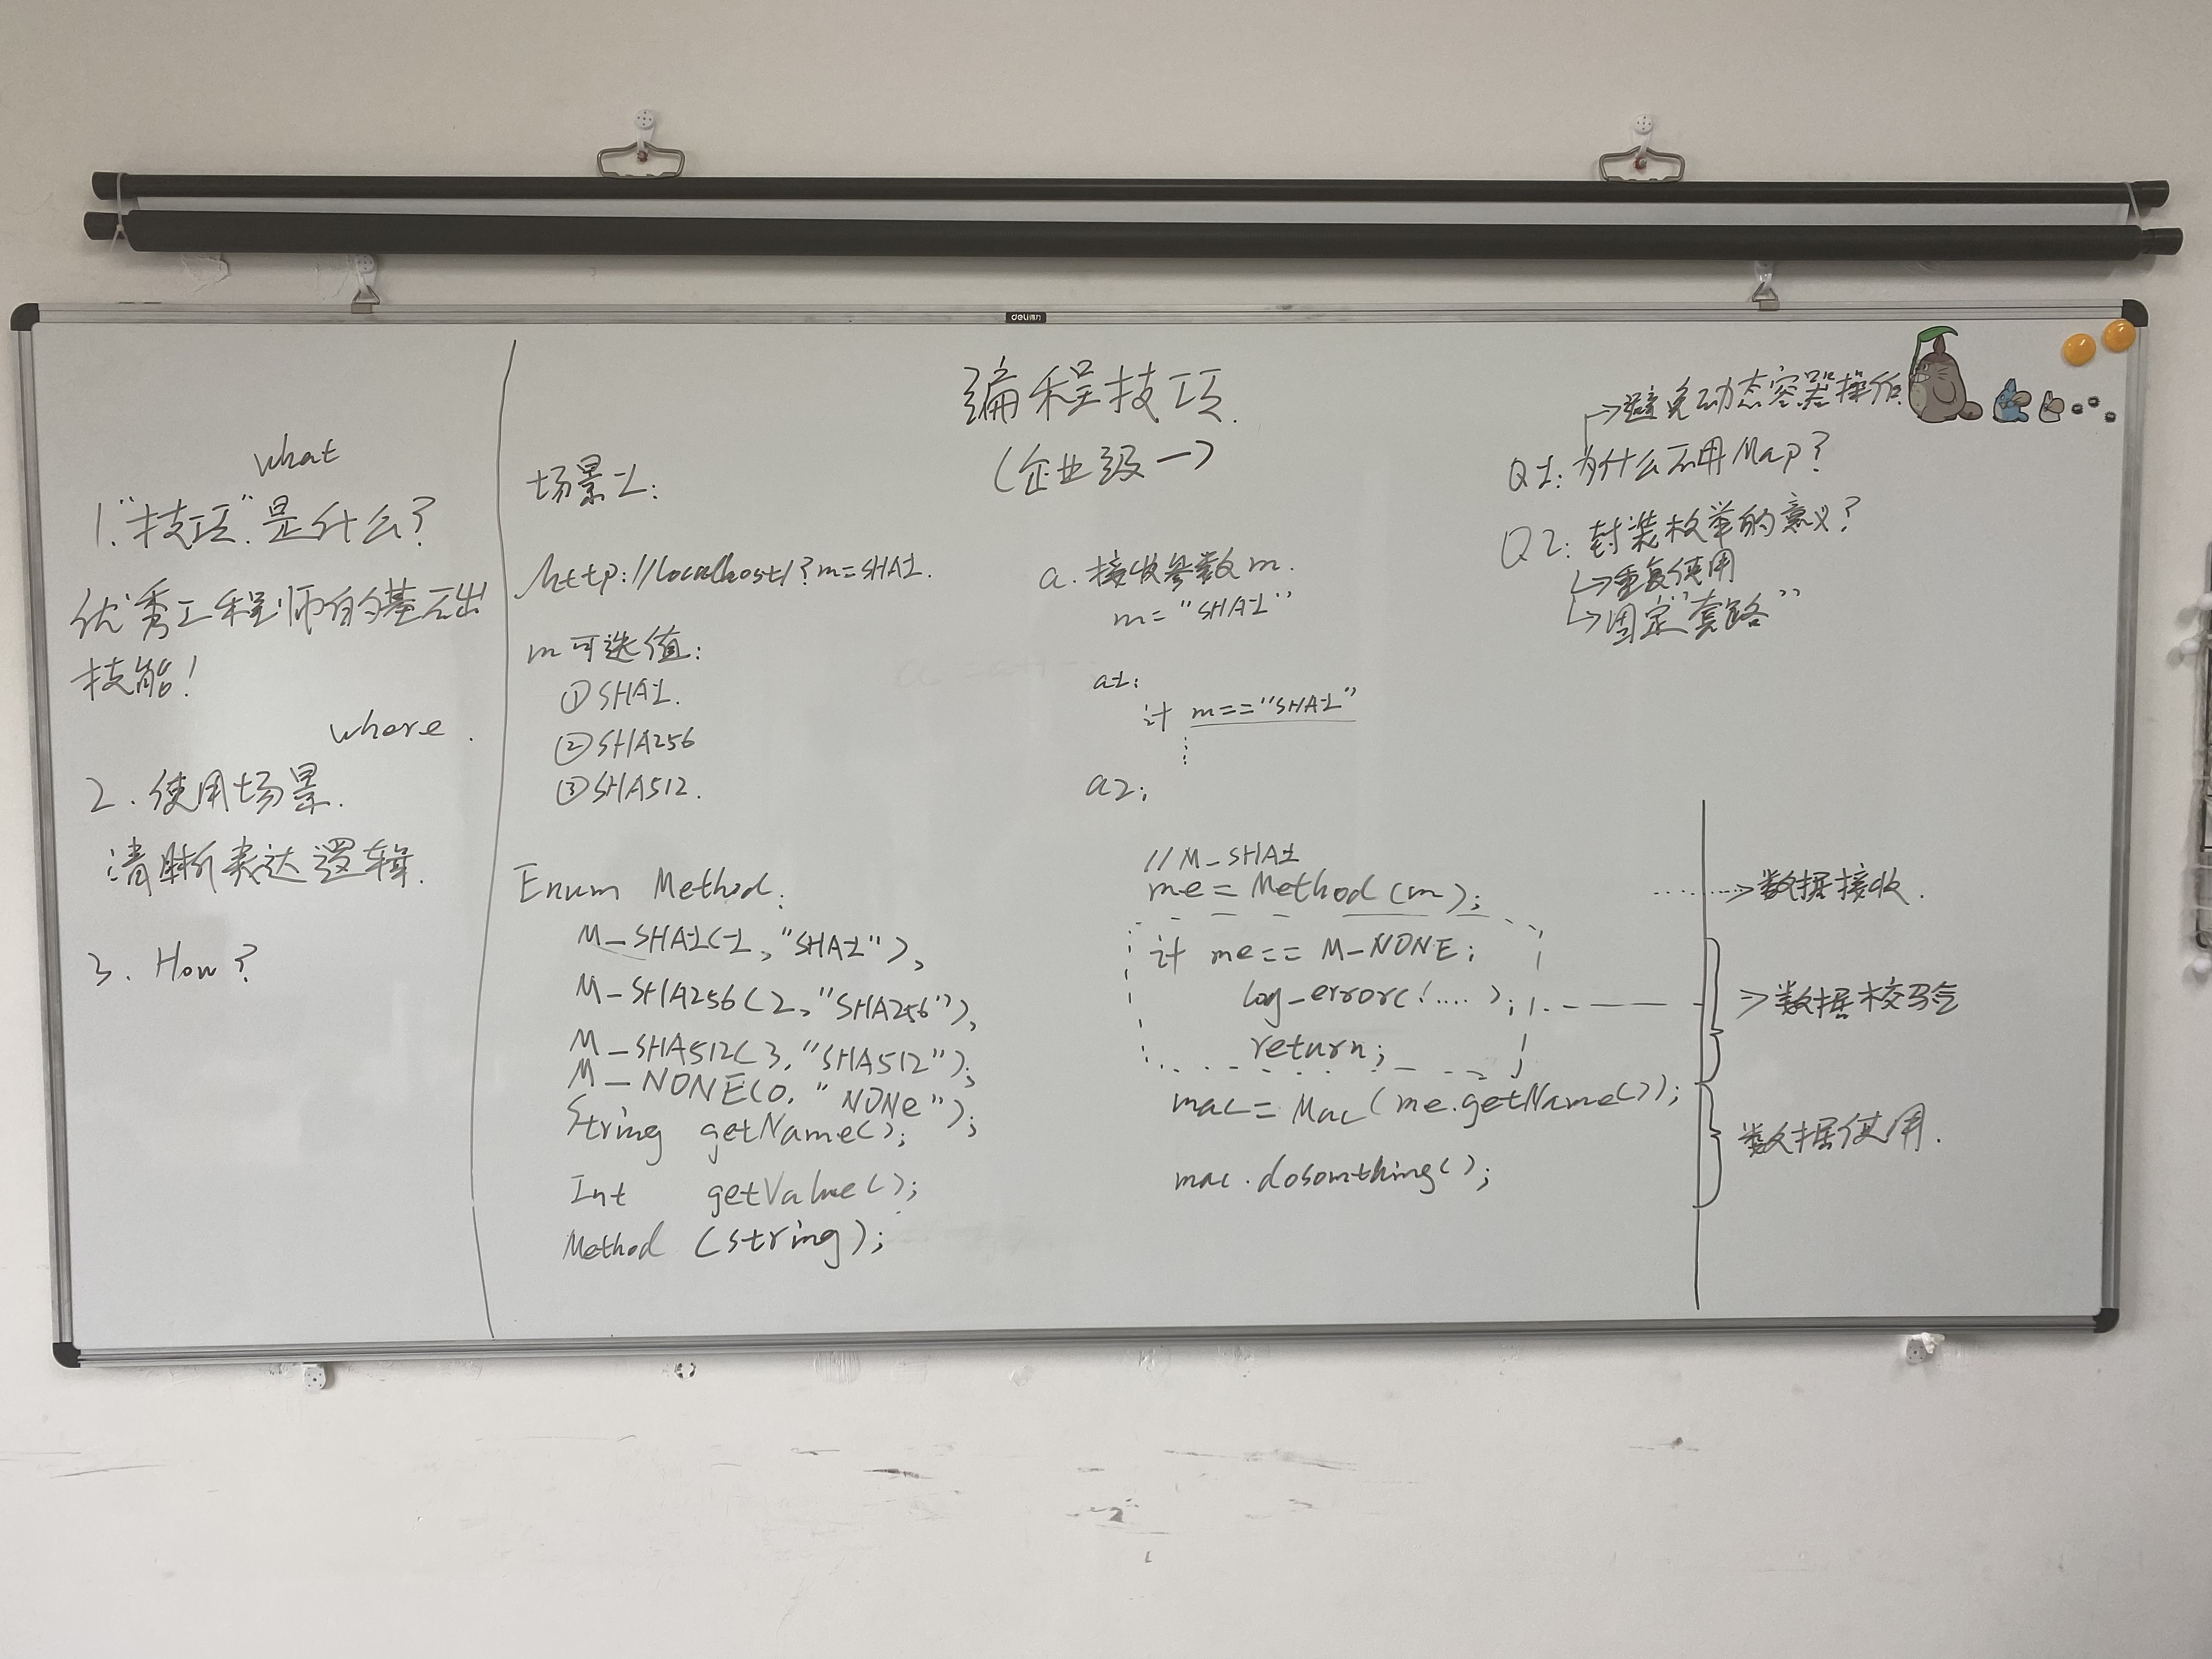 deli得力
编程技巧.
(企业级一)
what
1."技巧"是什么?
优秀工程师的基础
技能!
where.
2.使用场景.
清晰表达逻辑.
3. How?
场景1:
http://localhost/?m=SHA1.
m可选值:
①SHA1.
②SHA256
③SHA512.
Enum Method:
M_SHA1(1,"SHA1"),
M_SHA256(2,"SHA256"),
M_SHA512(3,"SHA512"),
M_NONE(0,"NONe");
String getName();
Int getValue();
Method (string);
a.接收参数m.
m="SHA1"
a1:
if m=="SHA1"
⋮
a2:
//M_SHA1
me=Method(m);
if me== M_NONE:
log_error(!....);
return;
mac=Mac(me.getName());
mac.dosomthing();
→避免动态容器操作
Q1:为什么不用Map?
Q2:封装枚举的意义?
↳重复使用
↳固定"套路"
→数据接收.
⇒数据校验
数据使用.